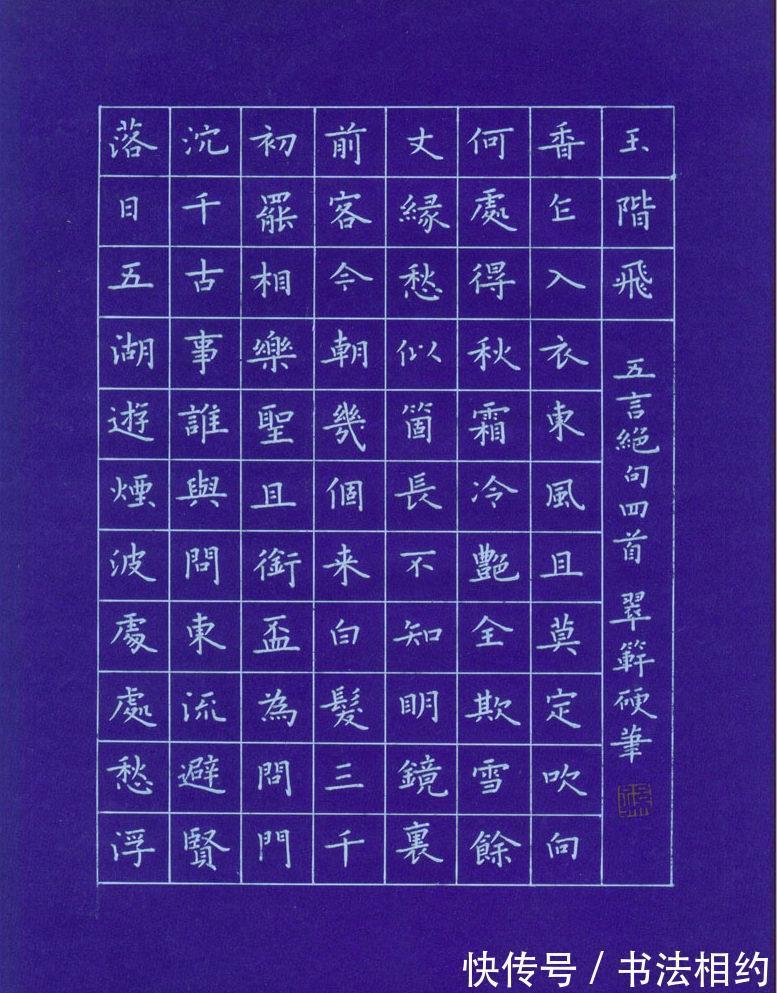 落日五湖遊煙波處處愁浮
沉千古事誰與問東流避賢
初罷相樂聖且銜盃為問門
前客今朝幾個来白髮三千
丈緣愁似箇長不知明鏡裏
何處得秋霜冷艷全欺雪餘
香乍入衣東風且莫定吹向
玉階飛
五言絕句四首 翠硬筆
快传号 / 书法相约